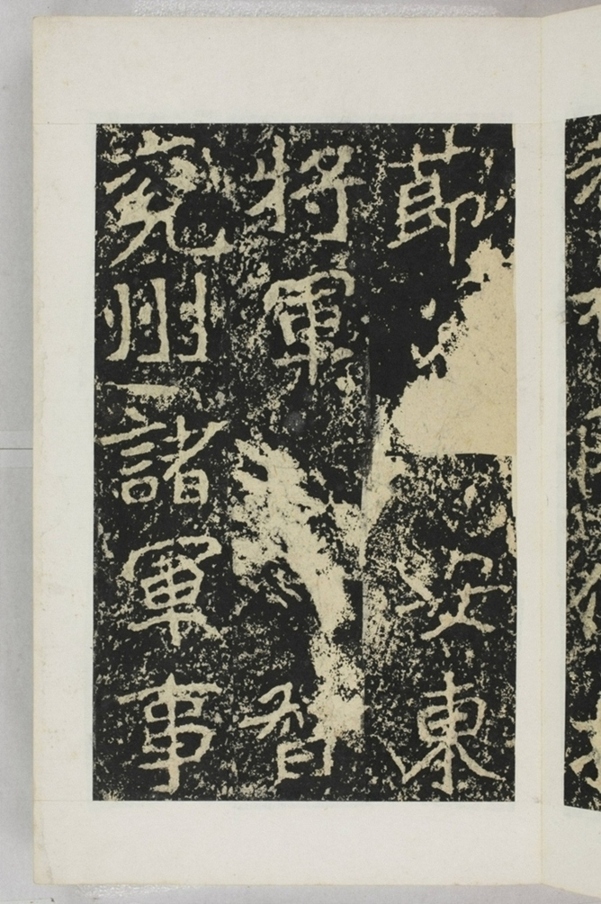 節安東
將軍
兖州諸軍事